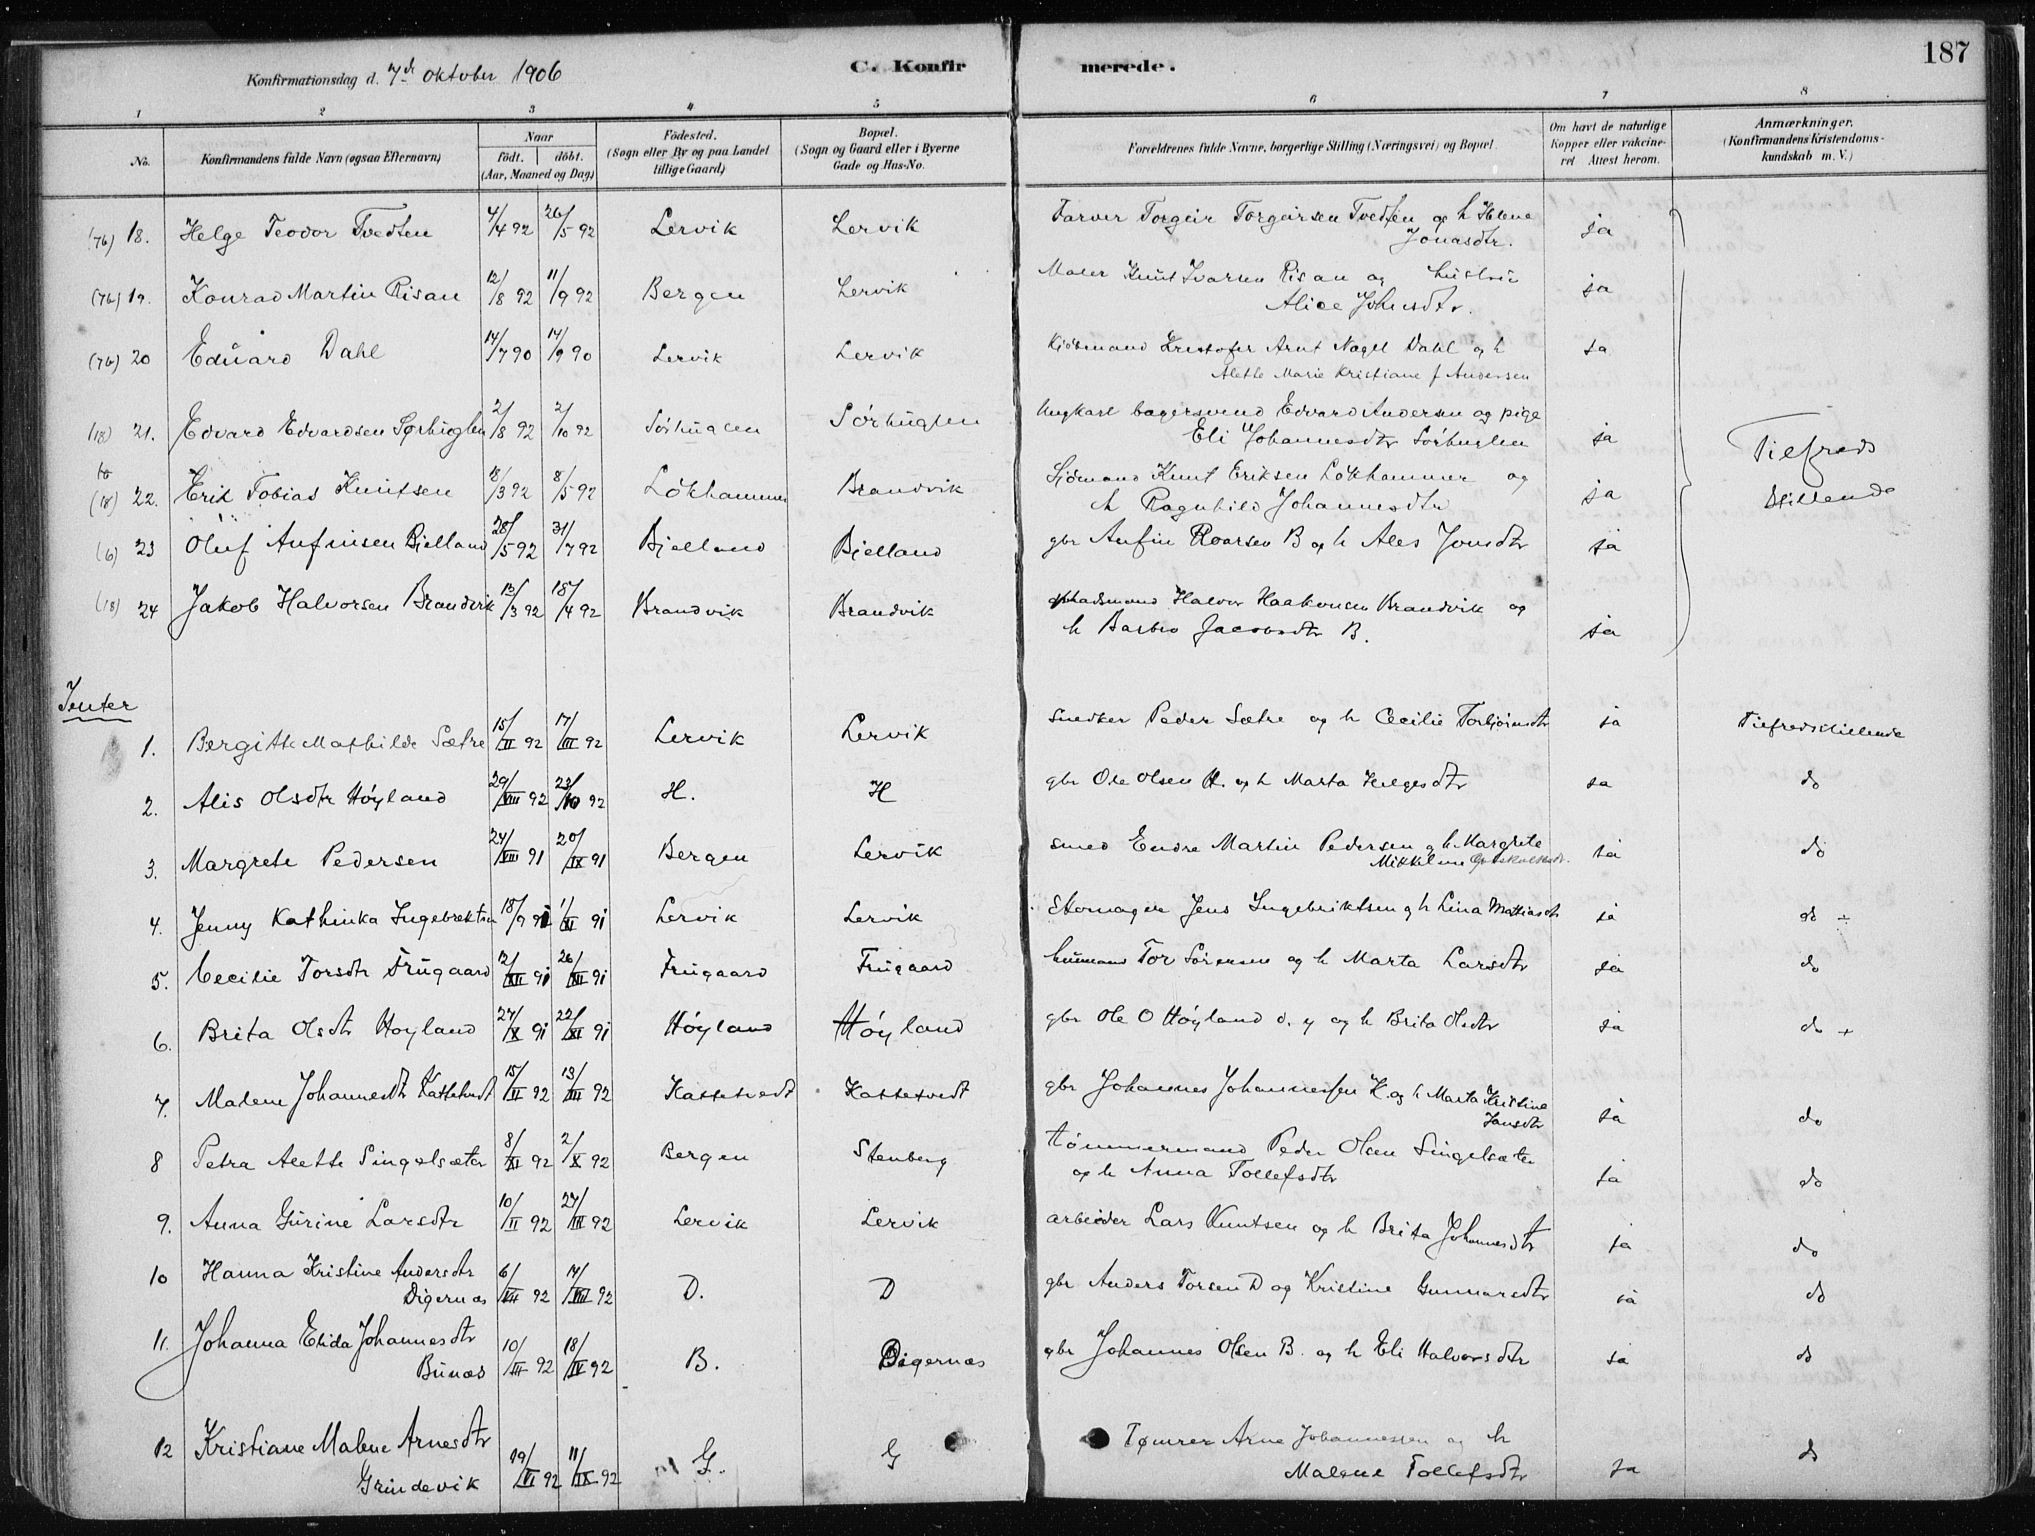 187
Konfirmationsdag d. 7de oktober 1906
C. Konfirmerede.
1 2 3 4 5 6 7 8
No.
Konfirmandens fulde Navn (ogsaa Efternavn)
Naar
födt. döbt.
(Aar, Maaned og Dag)
Födested.
(Sogn eller By og paa Landet
tillige Gaard)
Bopæl.
(Sogn og Gaard eller i Byerne
Gade og Hus-No.
Forældrenes fulde Navne, borgerlige Stilling (Næringsvei) og Bopæl.
Om havt de naturlige
Kopper eller vakcine-
ret Attest herom.
Anmærkninger.
(Konfirmandens Kristendoms-
kundskab m. V.)
(76) 18. Helge Teodor Tvedten 4/4 92 26/5 92 Lervik Lervik Farver Torgeir Torgeirsen Tvedten og h Helene ja
Jonasdtr.
(76) 19. Konrad Martin Risan 12/8 92 11/9 92 Bergen Lervik Maler Knut Ivarsen Risan og hustru ja
Alice Johnsdtr.
(76) 20 Eduard Dahl 14/7 90 14/9 90 Lervik Lervik Kjöbmand Kristofer Arnt Nagel Dahl og h ja
Alethe Marie Kristiane f Andersen
(18) 21. Edvard Edvardsen Sørhuglen 2/8 92 2/10 92 Sörhuglen Sörhuglen Ungkarl bagersvend Edvard Andersen og pige
Eli Johannesdtr Sörhuglen ja
Tilfreds
stillende
(18) 22. Erik Tobias Knutsen 18/3 92 8/5 92 Lökhammer Brandvik Sjömand Knut Eriksen Lökhammer og
h Ragnhild Johannesdtr ja
(6) 23 Oluf Anfinsen Bjelland 28/5 92 31/7 92 Bjelland Bjelland gbr Anfin Roarsen B og h Ales Jonsdtr ja
(18) 24 Jakob Halvorsen Brandvik 13/3 92 18/4 92 Brandvik Brandvik Halvor Haakonsen Brandvik og
h Barbro Jacobsdtr B. ja
Jenter
1. Bergitte Mathilde Sætre 15/II 92 17/III 92 Lervik Lervik Snedker Peder Sætre og h Cecilie Torbjörnsdtr ja Tilfredsstillende
2. Alis Olsdtr Höyland 29/VIII 92 23/10 92 H. H gbr Ole Olsen H. og h Marta Helgesdtr ja do
3. Margrete Pedersen 24/VIII 91 20/IX 91 Bergen Lervik smed Endre Martin Pedersen og h. Margrete ja do
Mikkeline
4. Jenny Kathinka Ingebrektsen 18/9 91 1/XI 91 Lervik Lervik Skomager Jens Ingebriktsen og h Lina Mattiasdtr ja do +
5. Cecilie Torsdtr Frugaard 12/XII 91 26/XII 91 Frugaard Frugaard husmand Tor Sörensen og h Marta Larsdtr ja do
6. Brita Olsdtr Hoyland 27/X 91 22/XI 91 Höyland Höyland gbr Ole O Höyland d. y og h Brita Olsdtr ja do +
7. Malene Johannesdtr Kattetvedt 15/II 92 13/III 92 Kattetvedt Kattetvedt gbr Johannes Johannessen K. og h Marta Kristine
Jansdtr ja do
8 Petra Alette Singelsæter 8/XI 92 2/X 92 Bergen Stenberg tömmermand Peder Olsen Singelsæter
og h Anna Tollefsdtr ja do
9. Anna Gurine Larsdtr 10/II 92 27/III 92 Lervik Lervik arbeider Lars Knutsen og h Brita Johannesdtr ja do
10 Hanna Kristine Andersdtr
Digernæs 6/VII 92 17/VII 92 D. D gbr Anders Torsen D og Kristine Gunnarsdtr ja do
11. Johanna Elida Johannesdtr
Bunæs 10/III 92 18/IV 92 B. Digernæs gbr Johannes Olsen B. og h Eli Halvorsdtr ja do
12 Kristiane Malene Arnesdtr
Grindevik 19/VI 92 11/IX 92 G. G Tømrer Arne Johannessen og h
Malene Tollefsdtr ja do